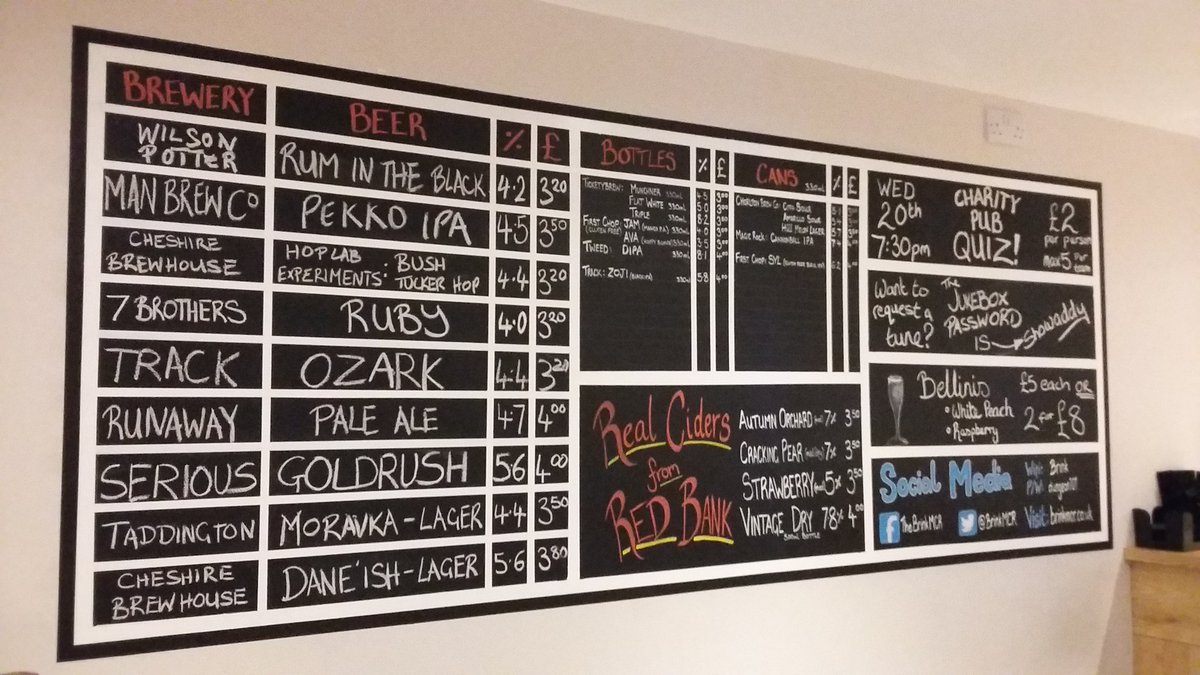 BREWERY BEER % £
WILSON POTTER RUM IN THE BLACK 4.2 3.20
MAN BREW Co PEKKO IPA 4.5 3.50
CHESHIRE BREWHOUSE HOP LAB EXPERIMENTS: BUSH TUCKER HOP 4.4 3.20
7 BROTHERS RUBY 4.0 3.20
TRACK OZARK 4.4 3.20
RUNAWAY PALE ALE 4.7 4.00
SERIOUS GOLDRUSH 5.6 4.00
TADDINGTON MORAVKA - LAGER 4.4 3.50
CHESHIRE BREWHOUSE DANE'ISH - LAGER 5.6 3.80
BOTTLES % £
TICKETYBREW: MUNCHNER 330ML 4.5
FLAT WHITE 330ML 5.0
TRIPLE 330ML 8.2
FIRST CHOP: JAM 4.0
(GLUTEN FREE) AVA 330ML 3.5
TWEED: DIPA 330ML 8.1 4.00
TRACK: ZOJI 330ML 5.8 4.00
CANS 330ML % £
CHORLTON BREW CO: CITRA SOUR
AMARILLO SOUR
MAGIC ROCK: CANNONBALL IPA 7.4
FIRST CHOP: SYL 6.2
Real Ciders
from
RED BANK
AUTUMN ORCHARD 7% 3.50
CRACKING PEAR 7% 3.50
STRAWBERRY 5% 3.50
VINTAGE DRY 7.8% 4.00
500ML BOTTLE
WED
20th
7:30pm
CHARITY
PUB
QUIZ!
£2
per person
max 5 per
team
Want to
request a
tune?
The
JUKEBOX
PASSWORD
IS → Showaddy
Bellinis £5 each OR
• White Peach 2 for £8
• Raspberry
Social Media
TheBrinkMCR @BrinkMCR
Wifi: Brink
P/W:
Visit: brinkmcr.co.uk